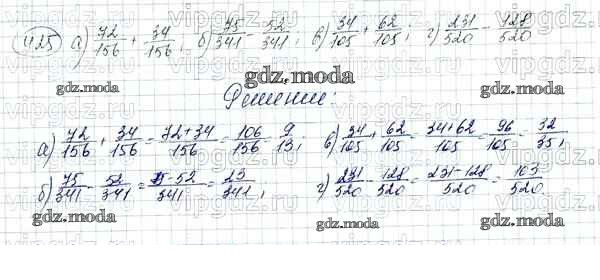 425 а) 72/156 + 34/156; б) 75/341 - 52/341; в) 34/105 + 62/105; г) 231/520 - 128/520
gdz.moda
Решение:
а) 72/156 + 34/156 = 72+34/156 = 106/156 9/13; в) 34/105 + 62/105 = 34+62/105 = 96/105 = 32/35;
б) 75/341 - 52/341 = 75-52/341 = 23/341; г) 231/520 - 128/520 = 231-128/520 = 103/520
gdz.moda gdz.moda